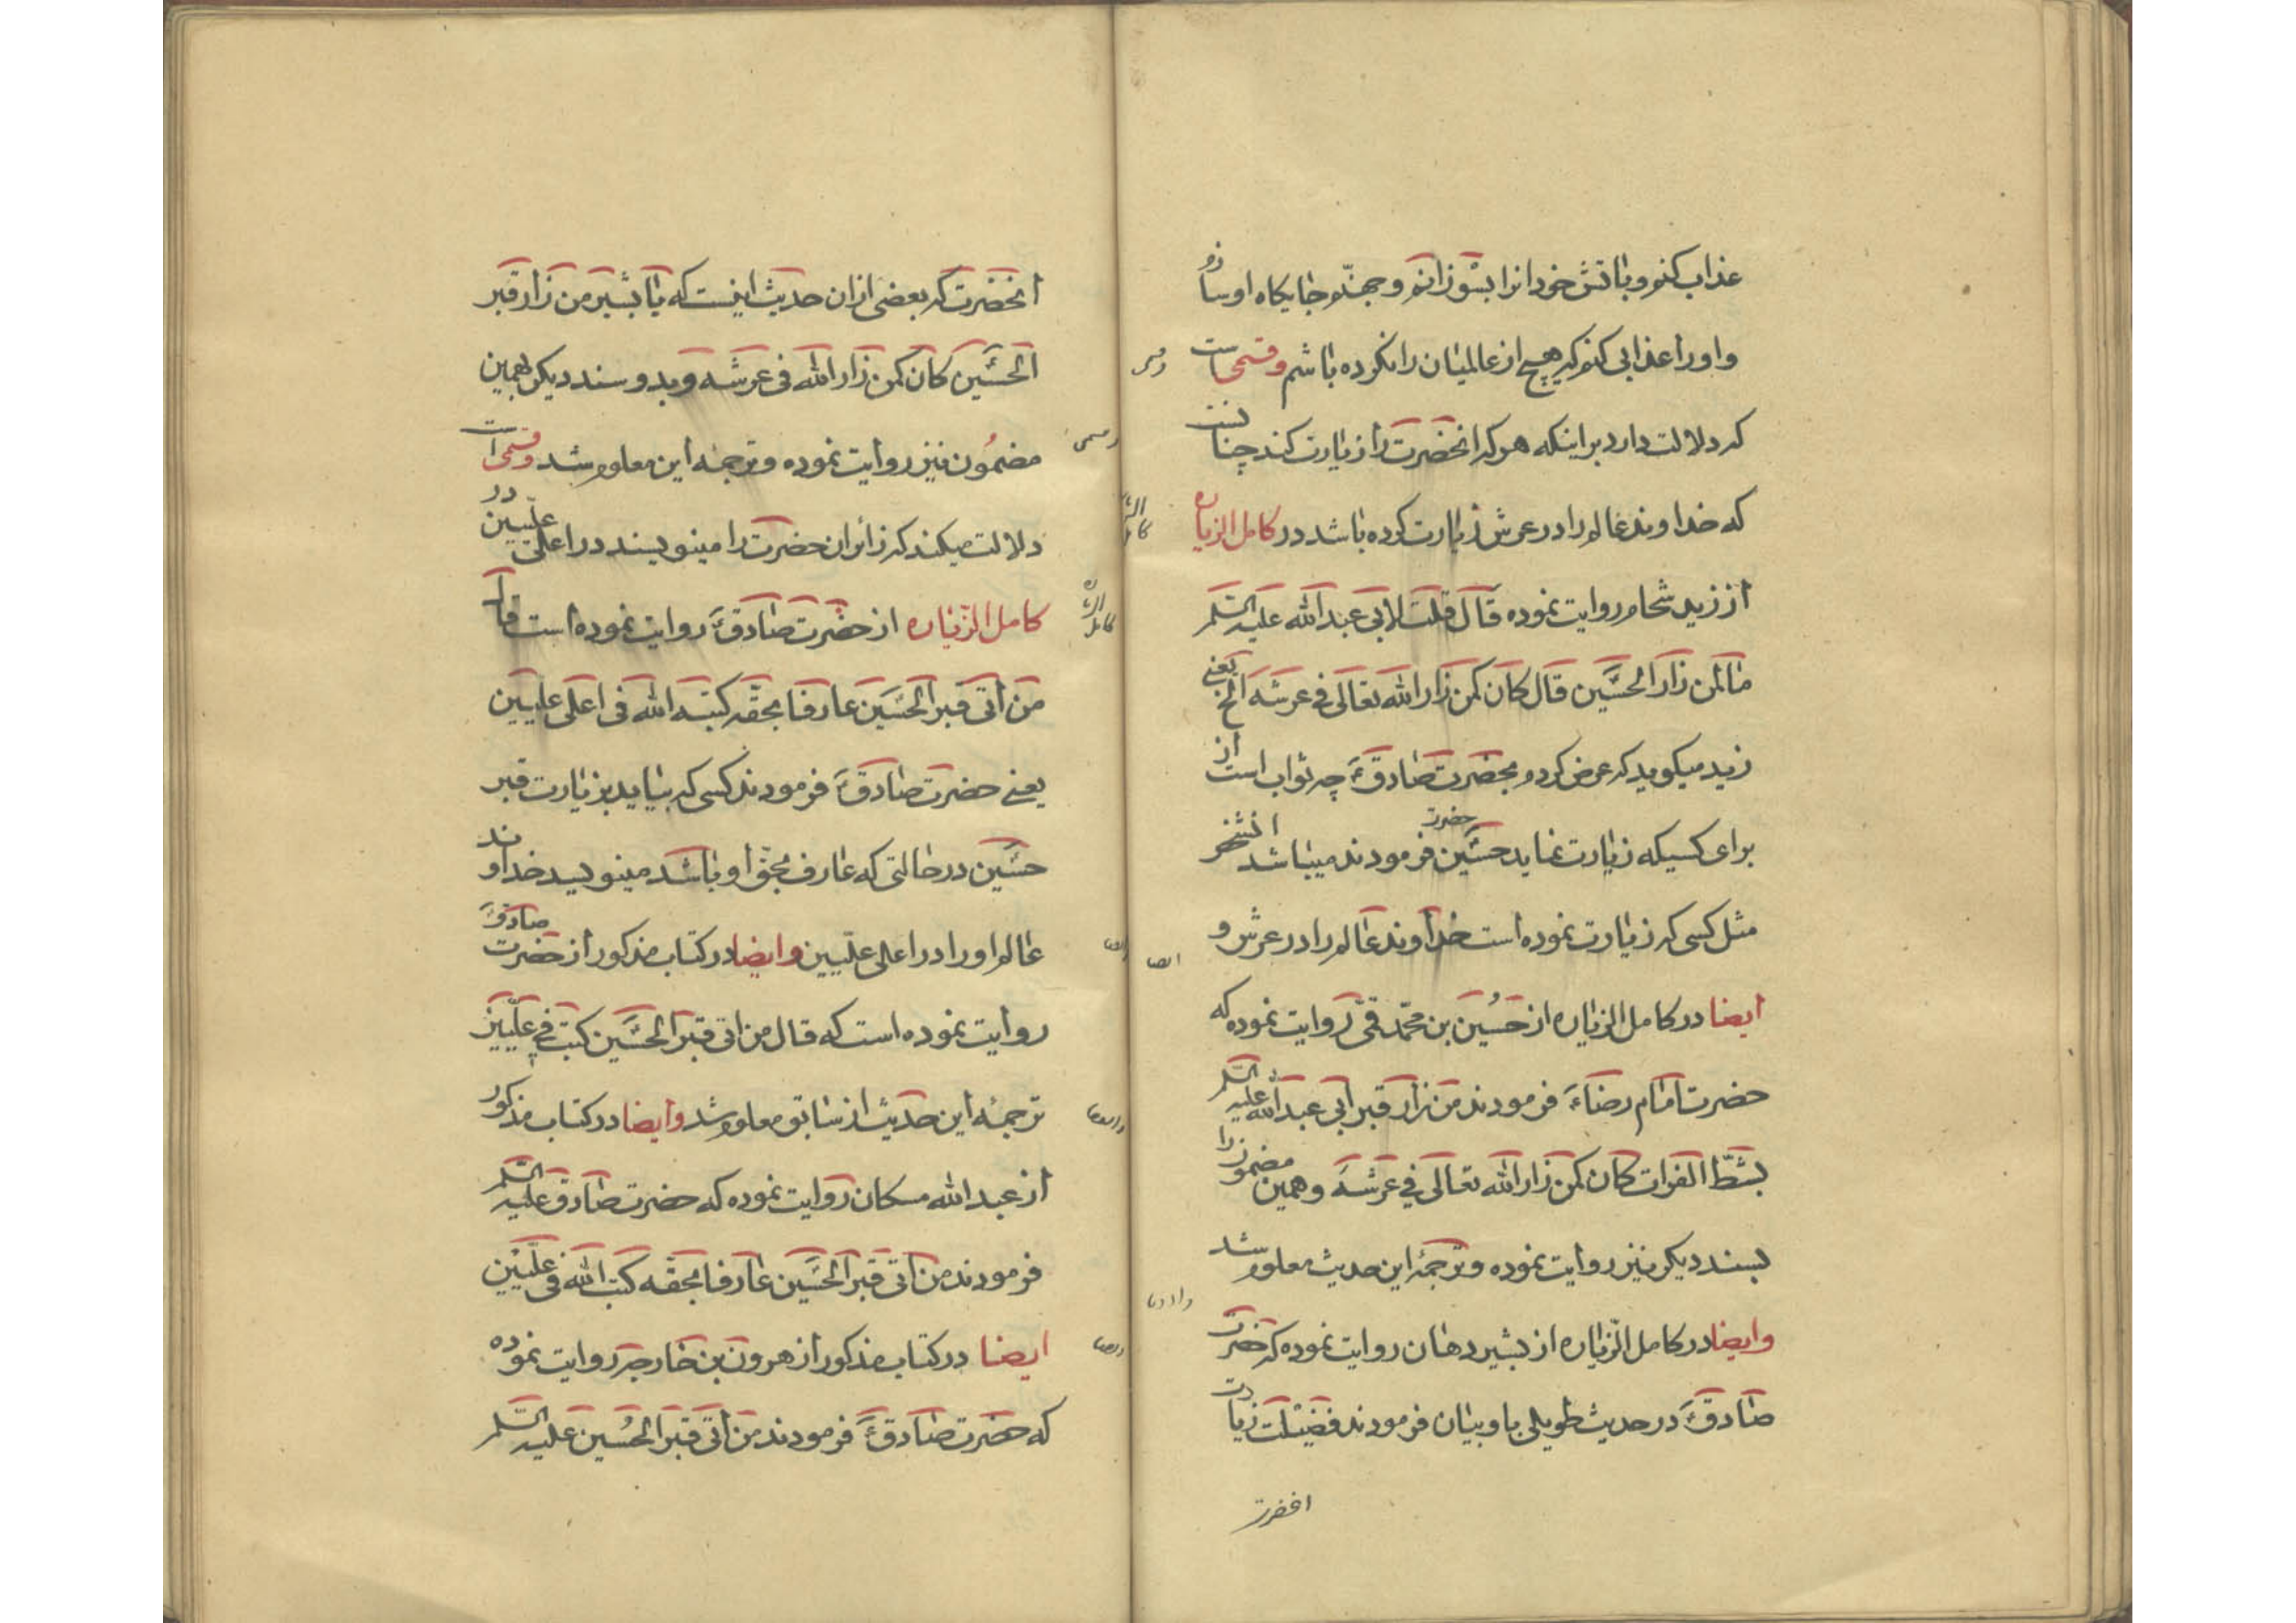 عذاب کنم و باتش خود انرا بسوزانم و جهنم جایکاه او سازم
و اورا عذابی کنم که هیچ از عالمیان را نکرده باشم و قسمی است
که دلالت دارد بر اینکه هر که انحضرت را زیارت کند چنانست
که خداوند عالم را در عرش زیارت کرده باشد در کامل الزیاره
از زید شحام روایت نموده قال قلت لابی عبدالله علیه السلم
ما لمن زار الحسین قال کان کمن زار الله تعالی فی عرشه الخ یعنی
زید میکوید که عرض کردم بحضرت صادقؑ چه ثواب است از
برای کسیکه زیارت نماید حضرت حسین فرمودند میباشد انشخص
مثل کسی که زیارت نموده است خداوند عالم را در عرش و
ایضا در کامل الزیاره از حسین بن محمد قمی روایت نموده که
حضرت امام رضاء فرمودند من زار قبر ابی عبدالله علیه السلم
بشط الفرات کان کمن زار الله تعالی فی عرشه و همین مضمونرا
بسند دیکر نیز روایت نموده و ترجمهٔ این حدیث معلوم شد
و ایضا در کامل الزیاره از بشیر دهان روایت نموده که حضرت
صادقؑ در حدیث طویلی باو بیان فرمودند فضیلت زیارت
انحضرت
انحضرت که بعضی ازان حدیث اینست که یا بشیر من زار قبر
الحسین کان کمن زار الله فی عرشه و بدو سند دیکر بهمین
مضمون نیز روایت نموده و ترجمه این معلوم شد و قسمی است
دلالت میکند که زائران حضرت را مینویسند در اعلی علیین در
کامل الزیاره از حضرت صادقؑ روایت نموده است قال
من اتی قبر الحسین عارفا بحقه کتبه الله فی اعلی علیین
یعنی حضرت صادقؑ فرمودند کسی که بیاید بزیارت قبر
حسین در حالتی که عارف بحق او باشد مینویسد خداوند
عالم اورا در اعلی علیین و ایضا در کتاب مذکور از حضرت صادقؑ
روایت نموده است که قال من اتی قبر الحسین کتب فی علیین
ترجمهٔ این حدیث از سابق معلوم شد و ایضا در کتاب مذکور
از عبدالله مسکان روایت نموده که حضرت صادق علیه السلم
فرمودند من اتی قبر الحسین عارفا بحقه کتب الله فی علیین
ایضا در کتاب مذکور از هرون بن خارجه روایت نموده
که حضرت صادقؑ فرمودند من اتی قبر الحسین علیه السلم